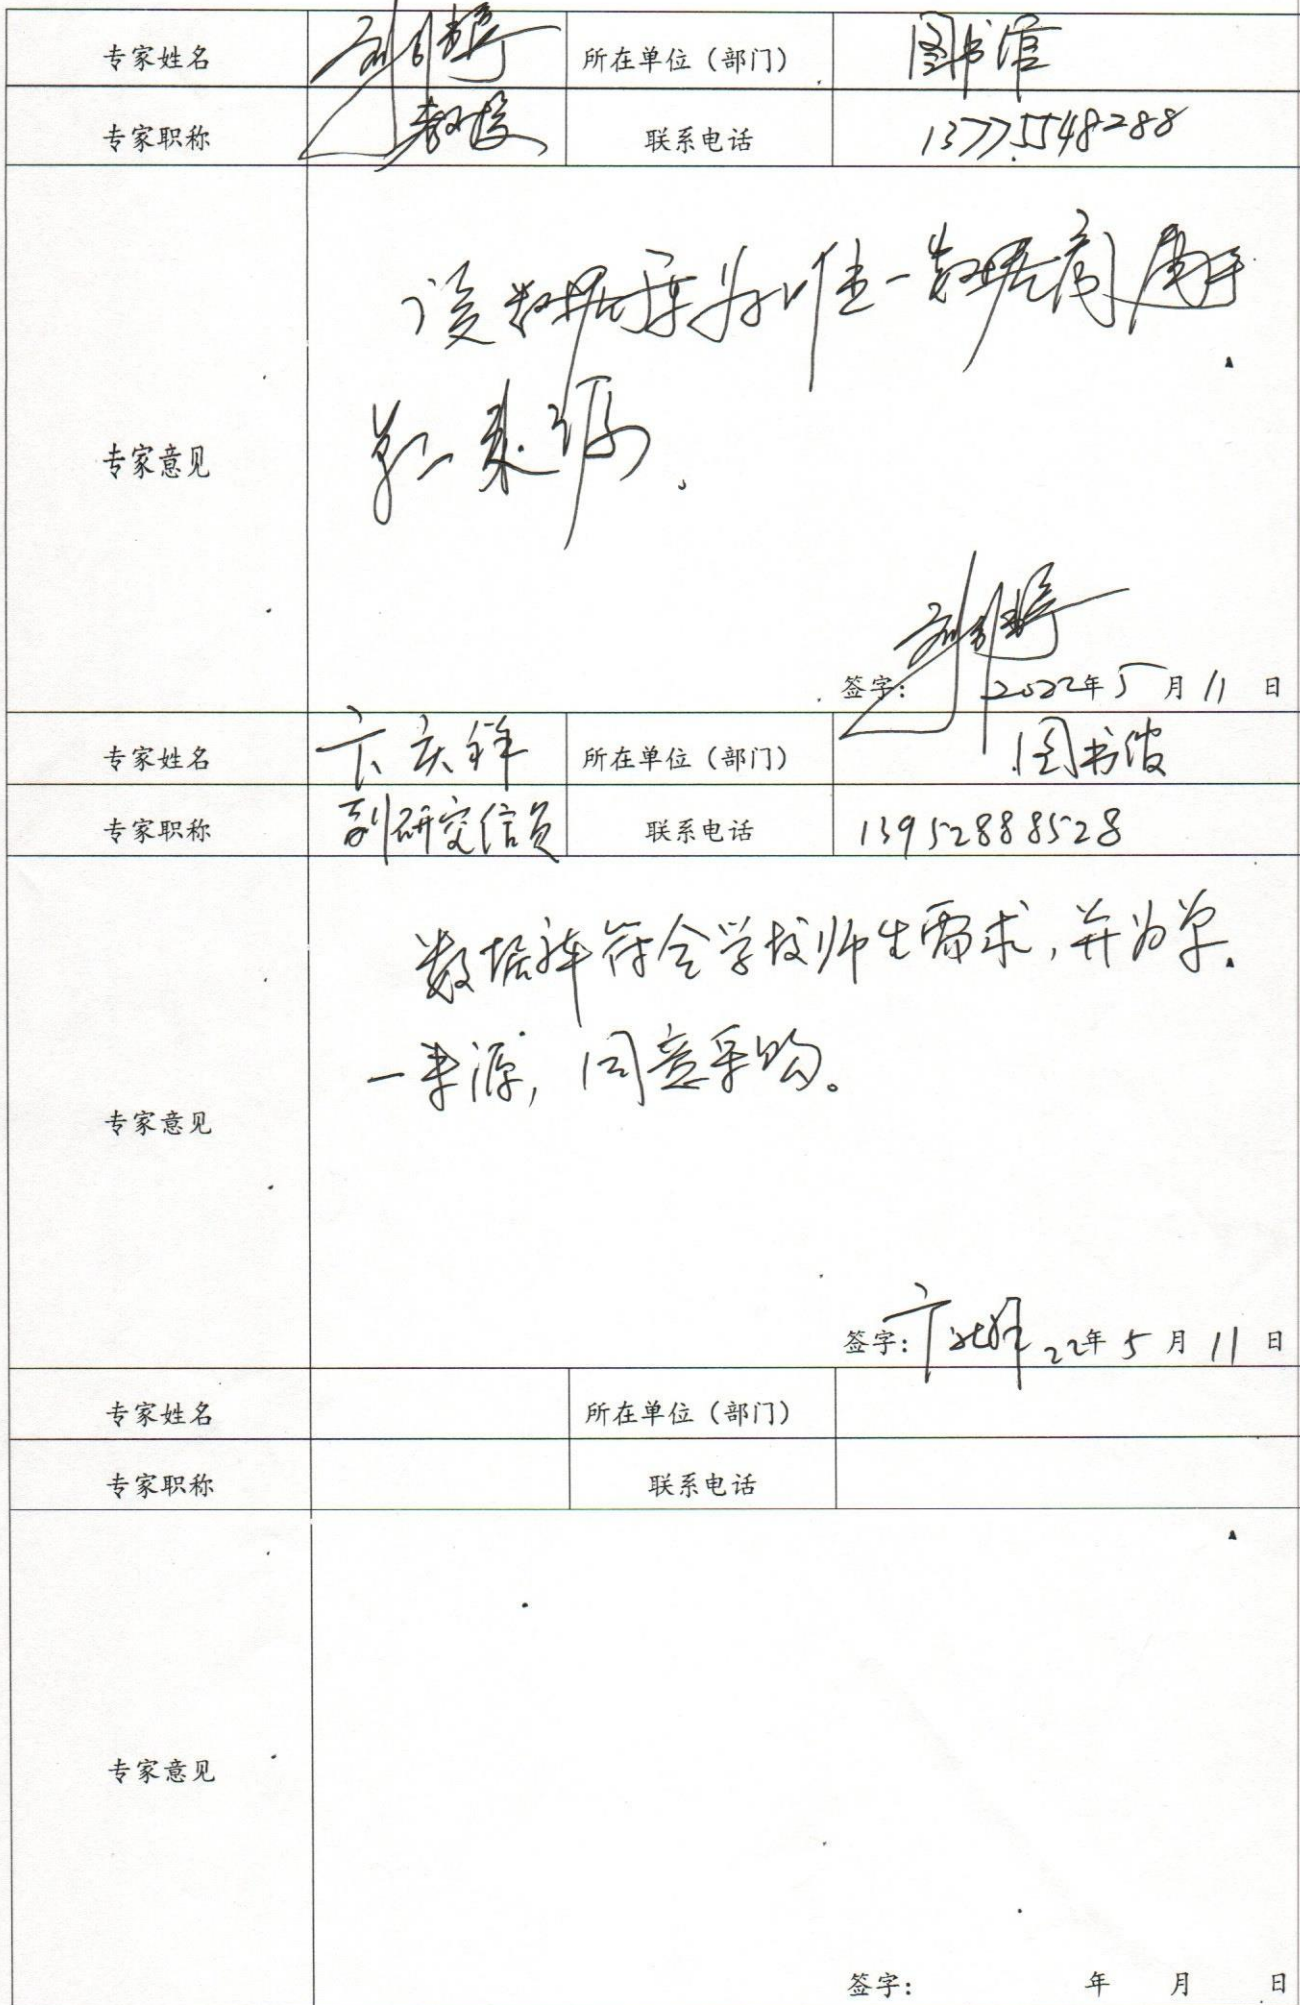 专家姓名 所在单位（部门） 图书馆
专家职称 教授 联系电话 13775548288
该数据库为唯一数据商，属于
专家意见 单一来源。
签字： 2022年5月11日
专家姓名 卞庆祥 所在单位（部门） 图书馆
专家职称 副研究馆员 联系电话 13952888528
数据库符合学校师生需求，并为单
一来源，同意采购。
专家意见
签字： 22年5月11日
专家姓名 所在单位（部门）
专家职称 联系电话
专家意见
签字： 年 月 日